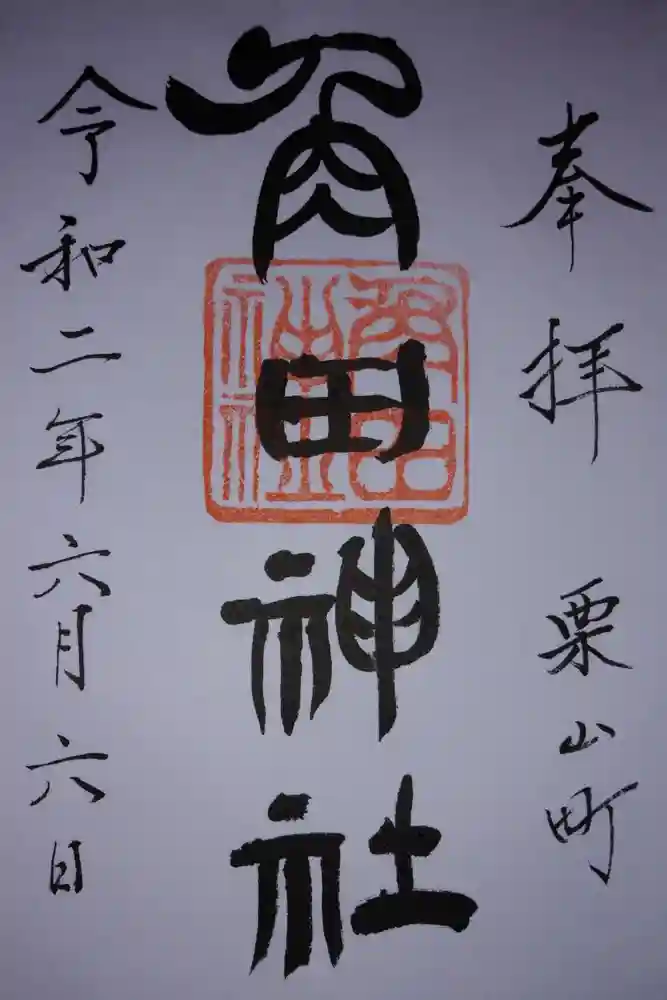 奉拝 栗山町
角田神社
令和二年六月六日